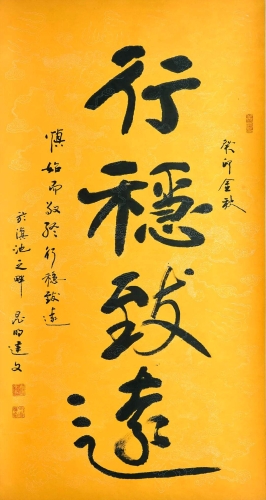 癸卯金秋
行穩致遠
慎始而敬終行穩致遠
於滇池之畔
建文